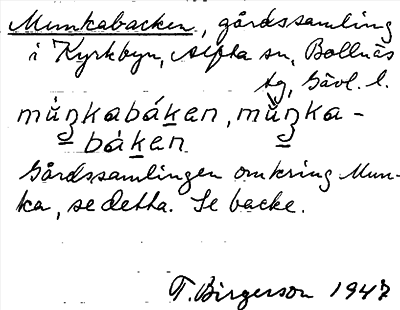 Munkabacken, gårdssamling
i Kyrkbyn, Alfta sn, Bollnäs
tg, Gävl. l.
múŋkabák̲en, mŭ̀ŋka-
bák̲en
Gårdssamlingen omkring Mun-
ka, se detta. Se backe.
T. Birgerson 1947